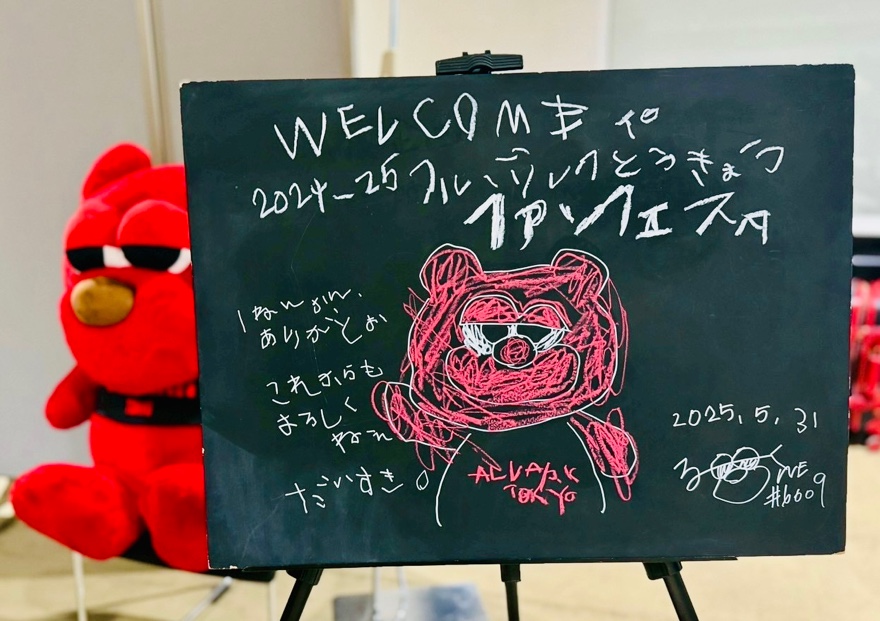 WELCOME to
2024-25 アルバルクとうきょう
ファンフェスタ
1ねんかん、
ありがとぉ
これからも
よろしく
ねえ
だいすき。
ALVARK
TOKYO
2025.5.31
#6009